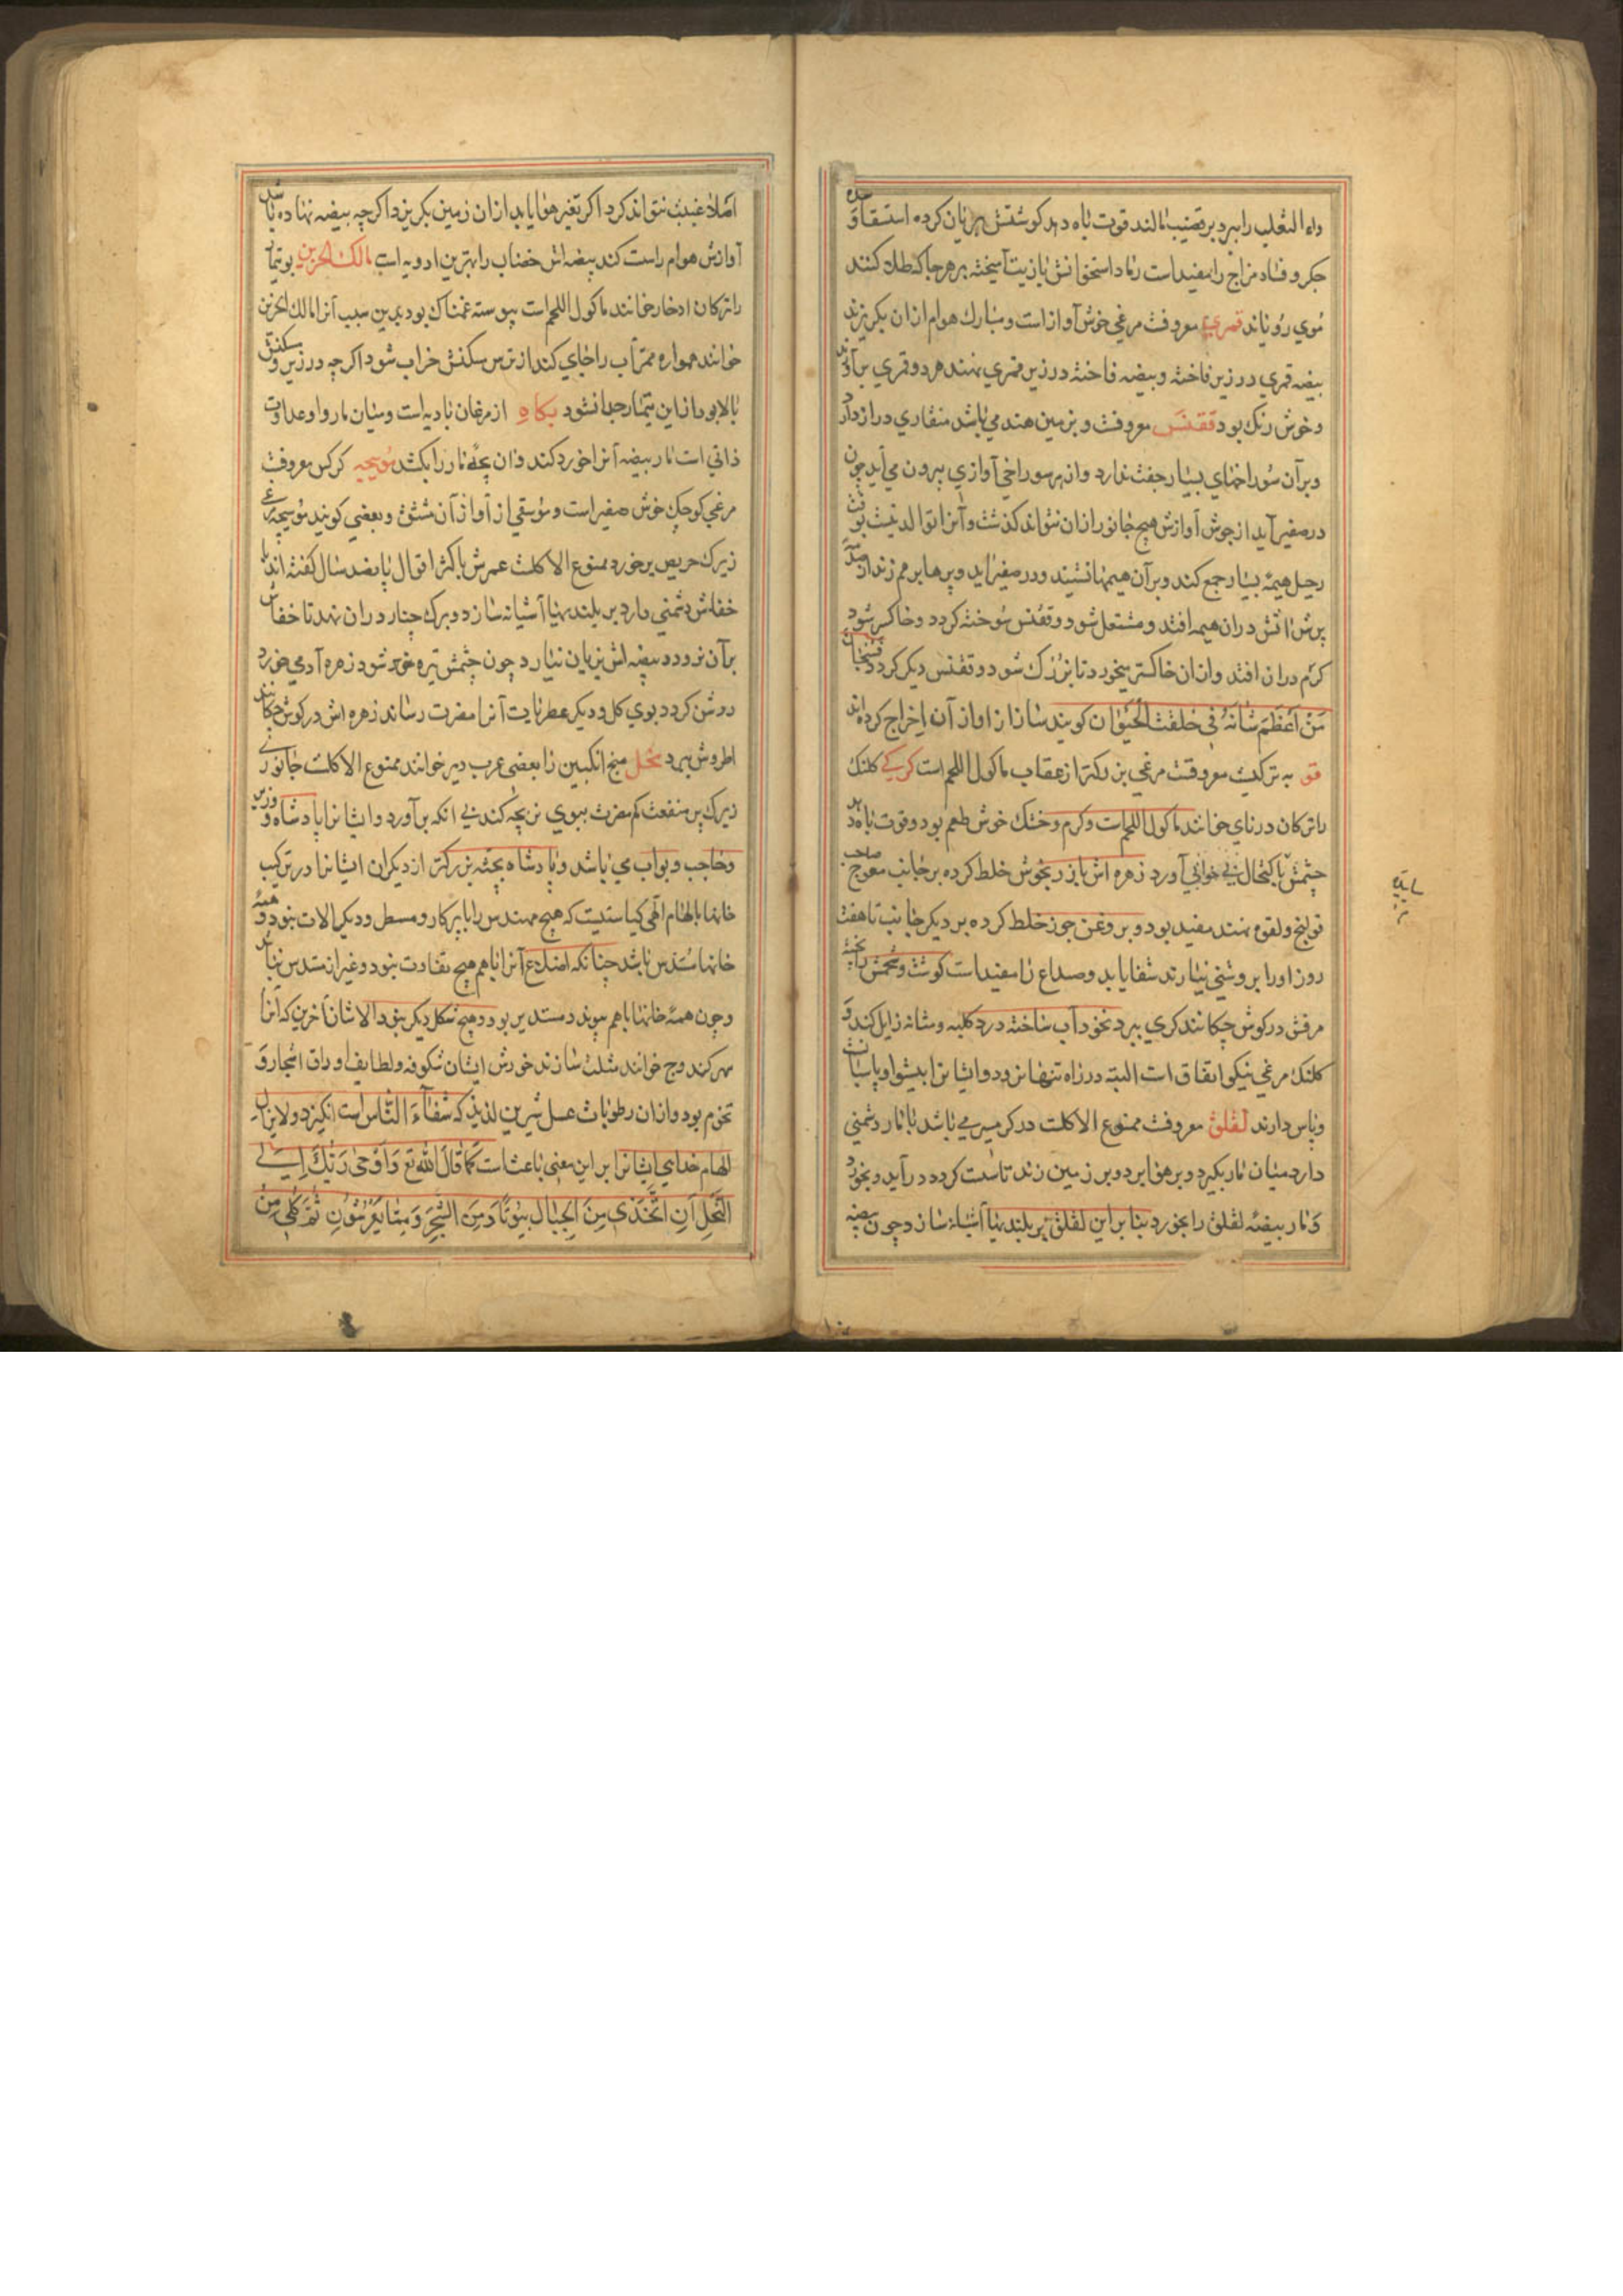 داء الثعلب را ببرد و بر قضیب مالند قوت باه دهد کوشتش بریان کرده استسقا و سده
جکر و فساد مزاج را مفید است رماد استخوانش با زیت آمیخته بر هر جا که طلا کنند
موی رویاند قمری معروفت مرغی خوش آواز است و مبارک هوام ازان بکریزند
بیضه قمری در زیر فاخته و بیضه فاخته در زیر قمری نهند هر دو قمری برآورند
و خوش رنک بود ققنس معروفت و بزمین هند می باشد منقاری دراز دارد
و بر آن سوراخهای بسیار جفت ندارد و از هر سوراخی آوازی بیرون می آید چون
در صفیر آید از خوش آوازش هیچ جانور ازان نتواند کذشت و آنرا توالد نیست بوقت
رحیل هیمه بسیار جمع کند و بر آن هیمها نشیند و در صفیر آید و پرها بر هم زند از
پرش اتش دران هیمه افتد و مشتعل شود و ققنس سوخته کردد و خاکستر شود
کرم دران افتد و ازان خاکستر میخورد تا بزرک شود و ققنس دیکر کردد فسبحان
من اعظم شانه فی خلقت الحیوان کویند ساز از آواز آن اخراج کرده اند
قو به ترکیت معروفت مرغی بزرکتر از عقاب ماکول اللحم است کرکی کلنک
را ترکان درنای خوانند ماکول اللحم است و کرم و خشک خوش طعم بود و قوت باه دهد
چشمش با کتحال بی خوابی آورد زهره اش با زر بخوش خلط کرده بر جانب معوج صاحب
قولنج و لقوه نهند مفید بود و بروغن جوز خلط کرده بر دیکر جانب تا هفت
روز او را بروشنی نیارند شفا یابد و صداع را مفید است کوشت و شحمش پخته
مرقش در کوش چکانند کری ببرد نخود آب ساخته درد کلیه و مثانه زایل کند و
کلنک مرغی نیکو اتفاق است البته در راه تنها نرود و ایشانرا پیشوا و پاسبانست
و پاس دارند لقلق معروفت ممنوع الاکلت در کرمسیر می باشد با مار دشمنی
دارد میان مار بکیرد و بر هوا برد و بر زمین زند تا سست کردد درآید و بخورد
و مار بیضه لقلق را بخورد بنا بر این لقلق بر بلندیها آشیانه سازد و چون بیضه
املا غیبت نتواند کرد اکر تغیر هوا یابد ازان زمین بکریزد اکرچه بیضه نهاده باشد
آوازش هوام راست کند بیضه اش خضاب را بهترین ادویه است مالک الحزین بوتیمار
را ترکان ادخار خوانند ماکول اللحم است پیوسته غمناک بود بدین سبب آنرا مالک الحزین
خوانند همواره ممر آب را جای کند از ترس سکنش خراب شود اکرچه در زیر و
بالا بود ازاین تیمار جدا نشود مکاه از مرغان بادیه است و میان مار و او عداوت
ذاتی است مار بیضه آنرا خورد کند و آن بچه مار را بکشد موسیچه کرکس معروفت
مرغی کوچک خوش صفیر است و موسیقی از آواز آن مشتق و بعضی کویند موسیچه مرغی
زیرک حریص پرخورد ممنوع الاکلت عمرش باکثر اقوال پانصد سال کفته اند با
خفاش دشمنی دارد بر بلندیها آشیانه سازد و برک چنار دران نهد تا خفاش
بر آن نرود و بیضه اش بزیان نیارد چون چشمش تیره شود زهره آدمی خورد
روشن کردد بوی کل و دیکر عطریات آنرا مضرت رساند زهره اش در کوش چکانند
اطروش ببرد نحل منج انکبین را بعضی عرب دبر خوانند ممنوع الاکلت جانوری
زیرک پر منفعت کم مضرت ببوی نر بچه کند بی انکه برآورد و ایشانرا پادشاه و وزیر
و حاجب و بواب می باشد و پادشاه بجثه بزرکتر از دیکران ایشانرا در ترکیب
خانها بالهام آلهی کیاستیست که هیچ مهندس را با پرکار و مسطر و دیکر الات بنود و همه
خانها مسدس باشد چنانکه اضلاع آنرا باهم هیچ تفاوت بنود و غیر از مسدس نباشد
و چون همه خانها باهم پیوندد مستدیر بود و هیچ شکل دیکر بنود الا شان آخرین که آنرا
مهر کند و ج خوانند مثلث سازند خورش ایشان شکوفه و لطایف اوراق اشجار و
تخوم بود و ازان رطوبات عسل شیرین لذیذ که شفآء الناس است انکیزد و لایزال
الهام خدای ایشانرا بر این معنی باعث است کما قال الله تع و اوحی ربک الی
النحل ان اتخذی من الجبال بیوتا و من الشجر و مما یعرشون ثم کلی من